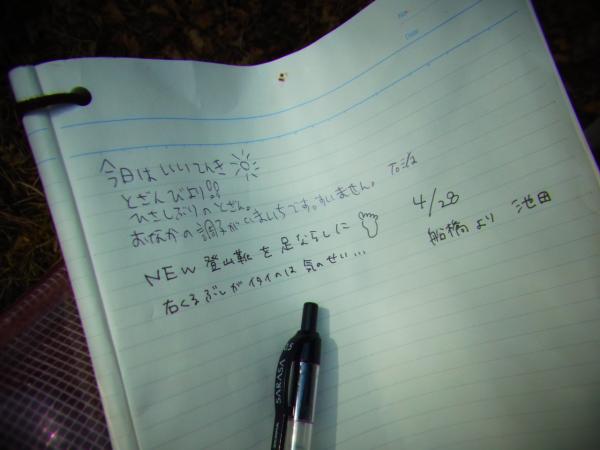 No.
Date
今日はいいてんき
とざんびより!!
ひさしぶりのとざん。
おなかの調子がいまいちです。すいません。
NEW 登山靴を足ならしに
右くるぶしがイタイのは気のせい…
4/28
船橋より 池田
SARASA